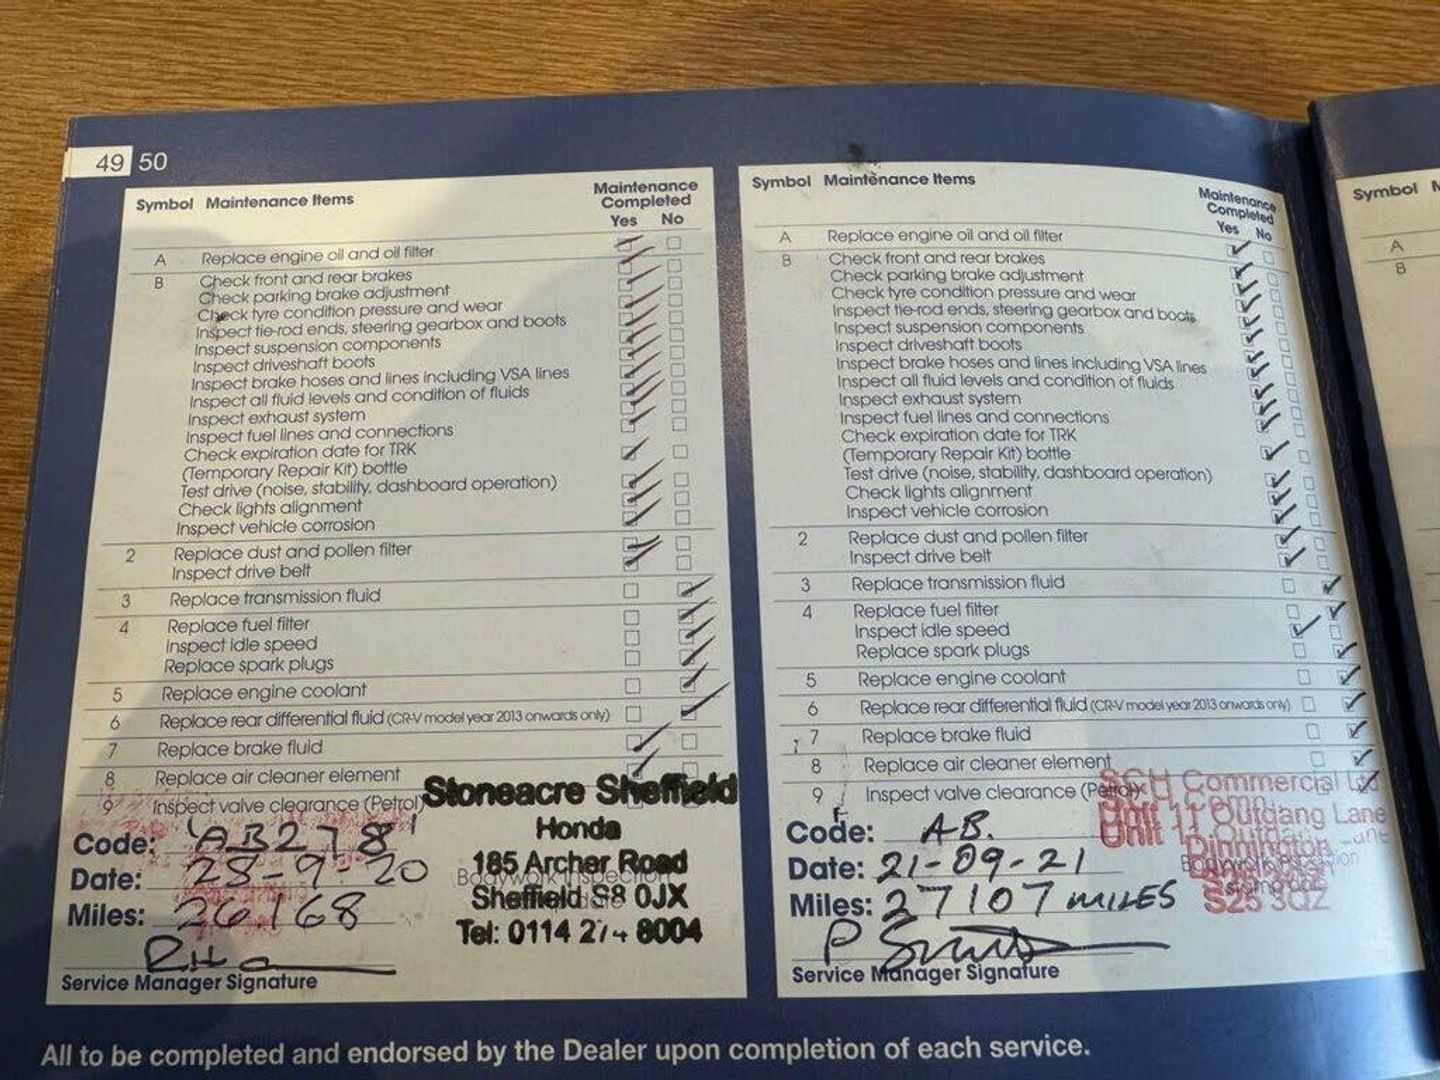 49 50
Symbol Maintenance Items
Maintenance
Completed
Yes No
A Replace engine oil and oil filter
B Check front and rear brakes
Check parking brake adjustment
Check tyre condition pressure and wear
Inspect tie-rod ends, steering gearbox and boots
Inspect suspension components
Inspect driveshaft boots
Inspect brake hoses and lines including VSA lines
Inspect all fluid levels and condition of fluids
Inspect exhaust system
Inspect fuel lines and connections
Check expiration date for TRK
(Temporary Repair Kit) bottle
Test drive (noise, stability, dashboard operation)
Check lights alignment
Inspect vehicle corrosion
2 Replace dust and pollen filter
Inspect drive belt
3 Replace transmission fluid
4 Replace fuel filter
Inspect idle speed
Replace spark plugs
5 Replace engine coolant
6 Replace rear differential fluid (CR-V model year 2013 onwards only)
7 Replace brake fluid
8 Replace air cleaner element
9 Inspect valve clearance (Petrol)
Stoneacre Sheffield
Honda
185 Archer Road
Sheffield S8 0JX
Tel: 0114 274 8004
Bodywork Inspection
Code: AB2781
Date: 28-9-20
Miles: 26168
Service Manager Signature
Symbol Maintenance Items
Maintenance
Completed
Yes No
A Replace engine oil and oil filter
B Check front and rear brakes
Check parking brake adjustment
Check tyre condition pressure and wear
Inspect tie-rod ends, steering gearbox and boots
Inspect suspension components
Inspect driveshaft boots
Inspect brake hoses and lines including VSA lines
Inspect all fluid levels and condition of fluids
Inspect exhaust system
Inspect fuel lines and connections
Check expiration date for TRK
(Temporary Repair Kit) bottle
Test drive (noise, stability, dashboard operation)
Check lights alignment
Inspect vehicle corrosion
2 Replace dust and pollen filter
Inspect drive belt
3 Replace transmission fluid
4 Replace fuel filter
Inspect idle speed
Replace spark plugs
5 Replace engine coolant
6 Replace rear differential fluid (CR-V model year 2013 onwards only)
7 Replace brake fluid
8 Replace air cleaner element
9 Inspect valve clearance (Petrol)
SCH Commercial Ltd
Unit 11 Outgang Lane
Dinnington
S25 3QZ
Bodywork Inspection
Code: AB.
Date: 21-09-21
Miles: 27107 MILES
Service Manager Signature
All to be completed and endorsed by the Dealer upon completion of each service.
Symbol
A
B